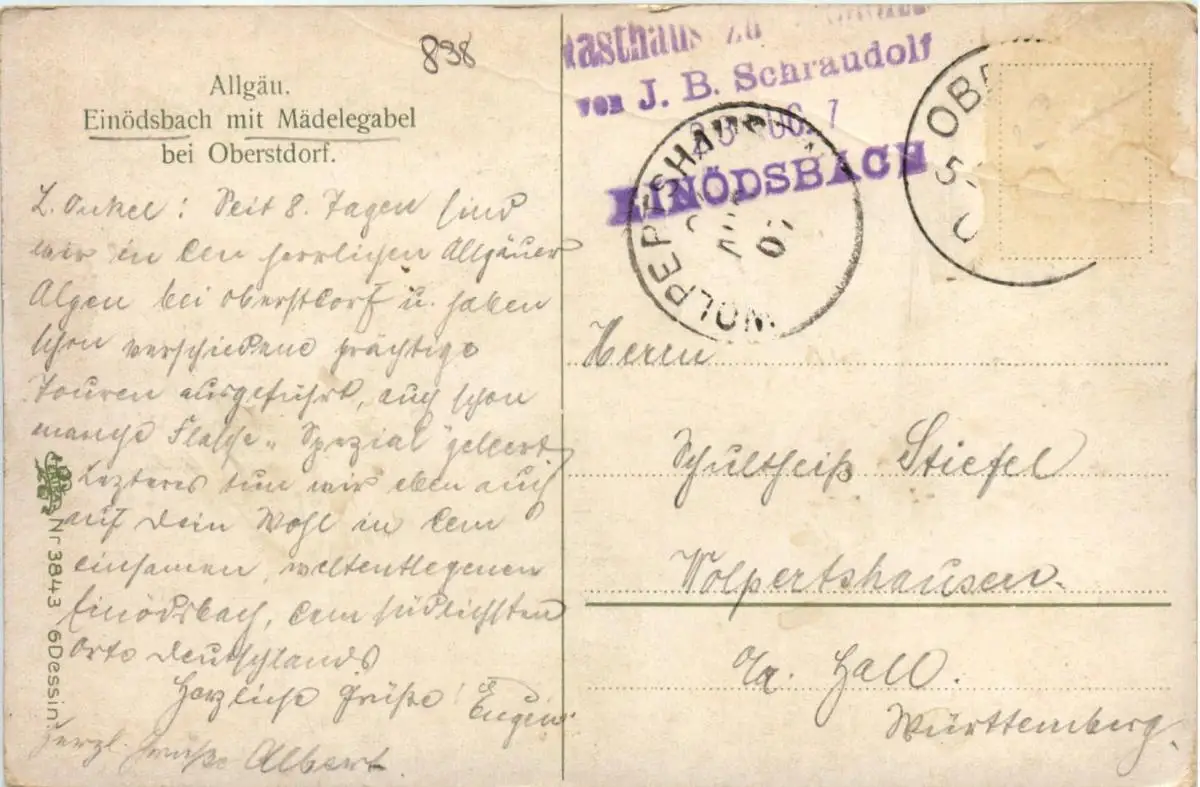 898
Allgäu.
Einödsbach mit Mädelegabel
bei Oberstdorf.
L. Onkel! Seit 8. Tagen sind
wir in den herrlichen Allgäuer
Alpen bei Oberstdorf u. haben
schon verschiedene prächtige
Touren ausgeführt, auch schon
manche Flasche „Spezial" geleert
Letzteres tun wir eben auch
auf Dein Wohl in dem
einsamen, weltentlegenen
Einödsbach, dem südlichsten
Orte Deutschlands
Herzliche Grüße! Eugen
Herzl. Grüße Albert.
Nr 3843 6Dessin.
Gasthaus zu
von J. B. Schraudolf
EINÖDSBACH
WOLPERTSHAUSEN
07
OBE
5-
Herrn
Schultheiß Stiefel
Wolpertshausen.
O/A. Hall.
Württemberg.